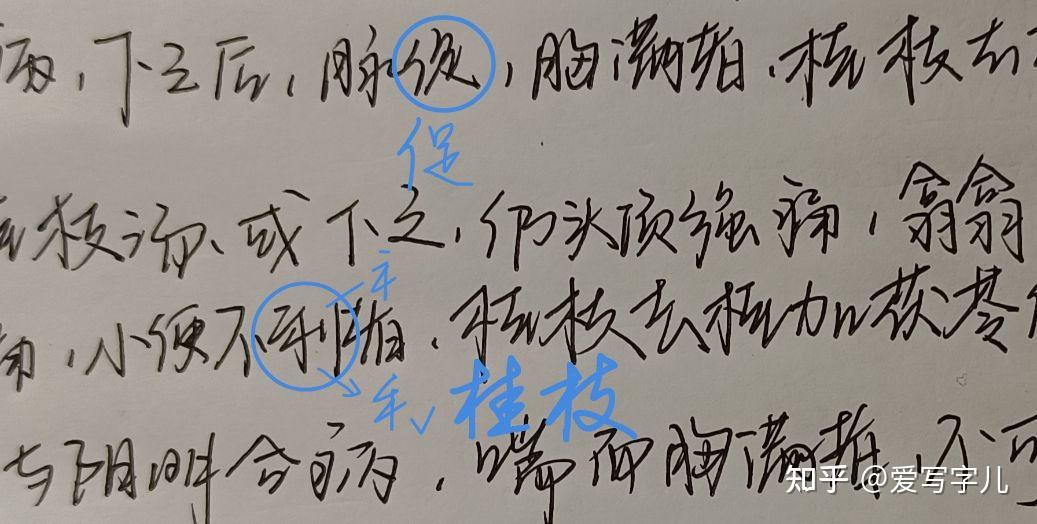 病，下之后，脉促，胸满者，桂枝去
促
桂枝汤、或下之，仍头项强痛，翕翕
丰
痛，小便不利者，桂枝去桂加茯苓
禾√ 桂枝
与阳明合病，喘而胸满者，不可
知乎 @爱写字儿